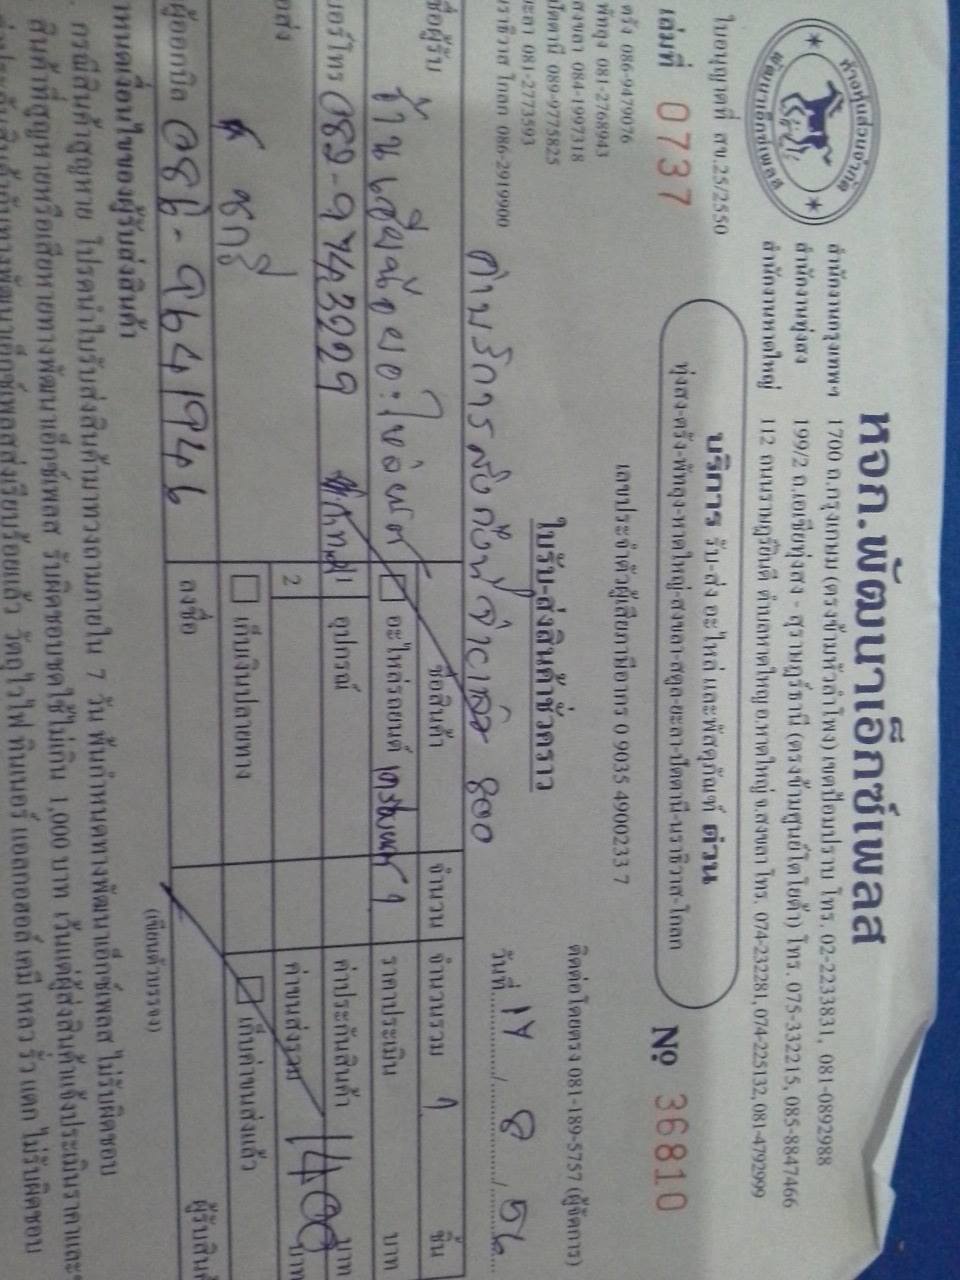 ห้างหุ้นส่วนจำกัด
พัฒนาเอ็กซ์เพลส
หจก.พัฒนาเอ็กซ์เพลส
สำนักงานกรุงเทพฯ 1700 ถ.กรุงเกษม (ตรงข้ามหัวลำโพง) เขตป้อมปราบ โทร. 02-2233831, 081-0892988
สำนักงานทุ่งสง 199/2 ถ.เอเชียทุ่งสง - สุราษฎร์ธานี (ตรงข้ามศูนย์โตโยต้า) โทร. 075-332215, 085-8847466
สำนักงานหาดใหญ่ 112 ถนนราษฎร์ยินดี ตำบลหาดใหญ่ อ.หาดใหญ่ จ.สงขลา โทร. 074-232281, 074-225132, 081-4792999
ใบอนุญาตที่ สข.25/2550
บริการ รับ-ส่ง อะไหล่ และพัสดุภัณฑ์ ด่วน
ทุ่งสง-ตรัง-พัทลุง-หาดใหญ่-สงขลา-สตูล-ยะลา-ปัตตานี-นราธิวาส-โกลก
เล่มที่ 0737
№ 36810
เลขประจำตัวผู้เสียภาษีอากร 0 9035 4900233 7
ตรัง 086-9479076
พัทลุง 081-2768943
สงขลา 084-1997318
ปัตตานี 089-9775825
ยะลา 081-2773593
นราธิวาส โกลก 086-2919900
ติดต่อโดยตรง 081-189-5757 (ผู้จัดการ)
ใบรับ-ส่งสินค้าชั่วคราว
วันที่ 17 / 8 / 56
800
ชื่อผู้รับ
ชื่อสินค้า จำนวน จำนวนรวม 1 ชิ้น
อะไหล่รถยนต์ 1 ราคาประเมิน บาท
เบอร์โทร 089-9743929
1 อุปกรณ์ ค่าประกันสินค้า บาท
2 ค่าขนส่งรวม 1400 บาท
เก็บเงินปลายทาง เก็บค่าขนส่งแล้ว
ผู้ออกบิล 086-9641946
ลงชื่อ ผู้รับสินค้า
(เขียนตัวบรรจง)
กำหนดเงื่อนไขของผู้รับส่งสินค้า
กรณีสินค้าสูญหาย โปรดนำใบรับส่งสินค้ามาทวงถามภายใน 7 วัน พ้นกำหนดทางพัฒนาเอ็กซ์เพลส ไม่รับผิดชอบ
สินค้าที่สูญหายหรือเสียหายทางพัฒนาเอ็กซ์เพลส รับผิดชอบชดใช้ไม่เกิน 1,000 บาท เว้นแต่ผู้ส่งสินค้าแจ้งประเมินราคาและ
วัตถุไวไฟ ทินเนอร์ แอลกอฮอล์ เคมี เหลว รั่ว แตก ไม่รับผิดชอบ